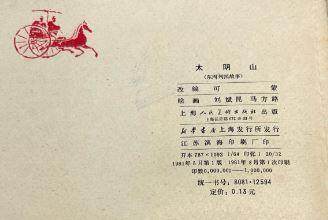 太阴山
(东周列国故事)
改编 可蒙
绘画 刘斌昆 马方路
上海人民美术出版社出版
上海长乐路672弄33号
新华书店上海发行所发行
江苏滨海印刷厂印
开本787×1092 1/64 印张1 20/32
1981年5月第1版 1981年8月第1次印刷
印数0,000,001—1,000,000
统一书号：8081·12594
定价：0.13元